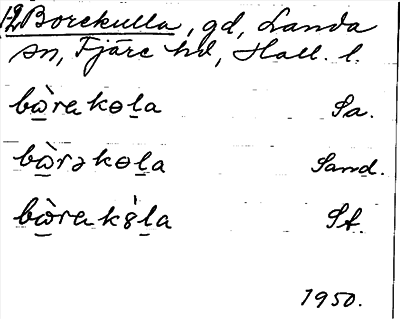 12 Borekulla, gd, Landa
sn, Fjäre hd, Hall. l.
bὼ̲ra kɵl̲a Sa.
bὼ̲rə kɵl̲a Sand.
bὼ̲ra k8̀l̲a St.
1950.